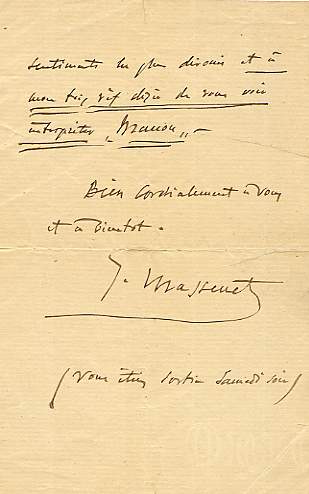 sentiments les plus divers et à
mon très vif désir de vous voir
interpréter „Manon„ —
Bien cordialement à vous
et à bientôt.
J. Massenet
(vous étiez sortie samedi soir)